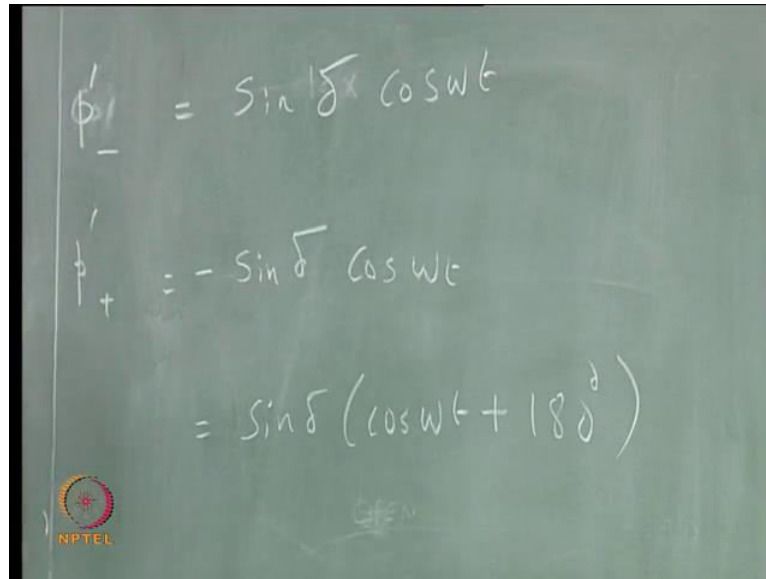 p'₋ = sin δ cos ωt
p'₊ = - sin δ cos ωt
= sin δ (cos ωt + 180°)
NPTEL